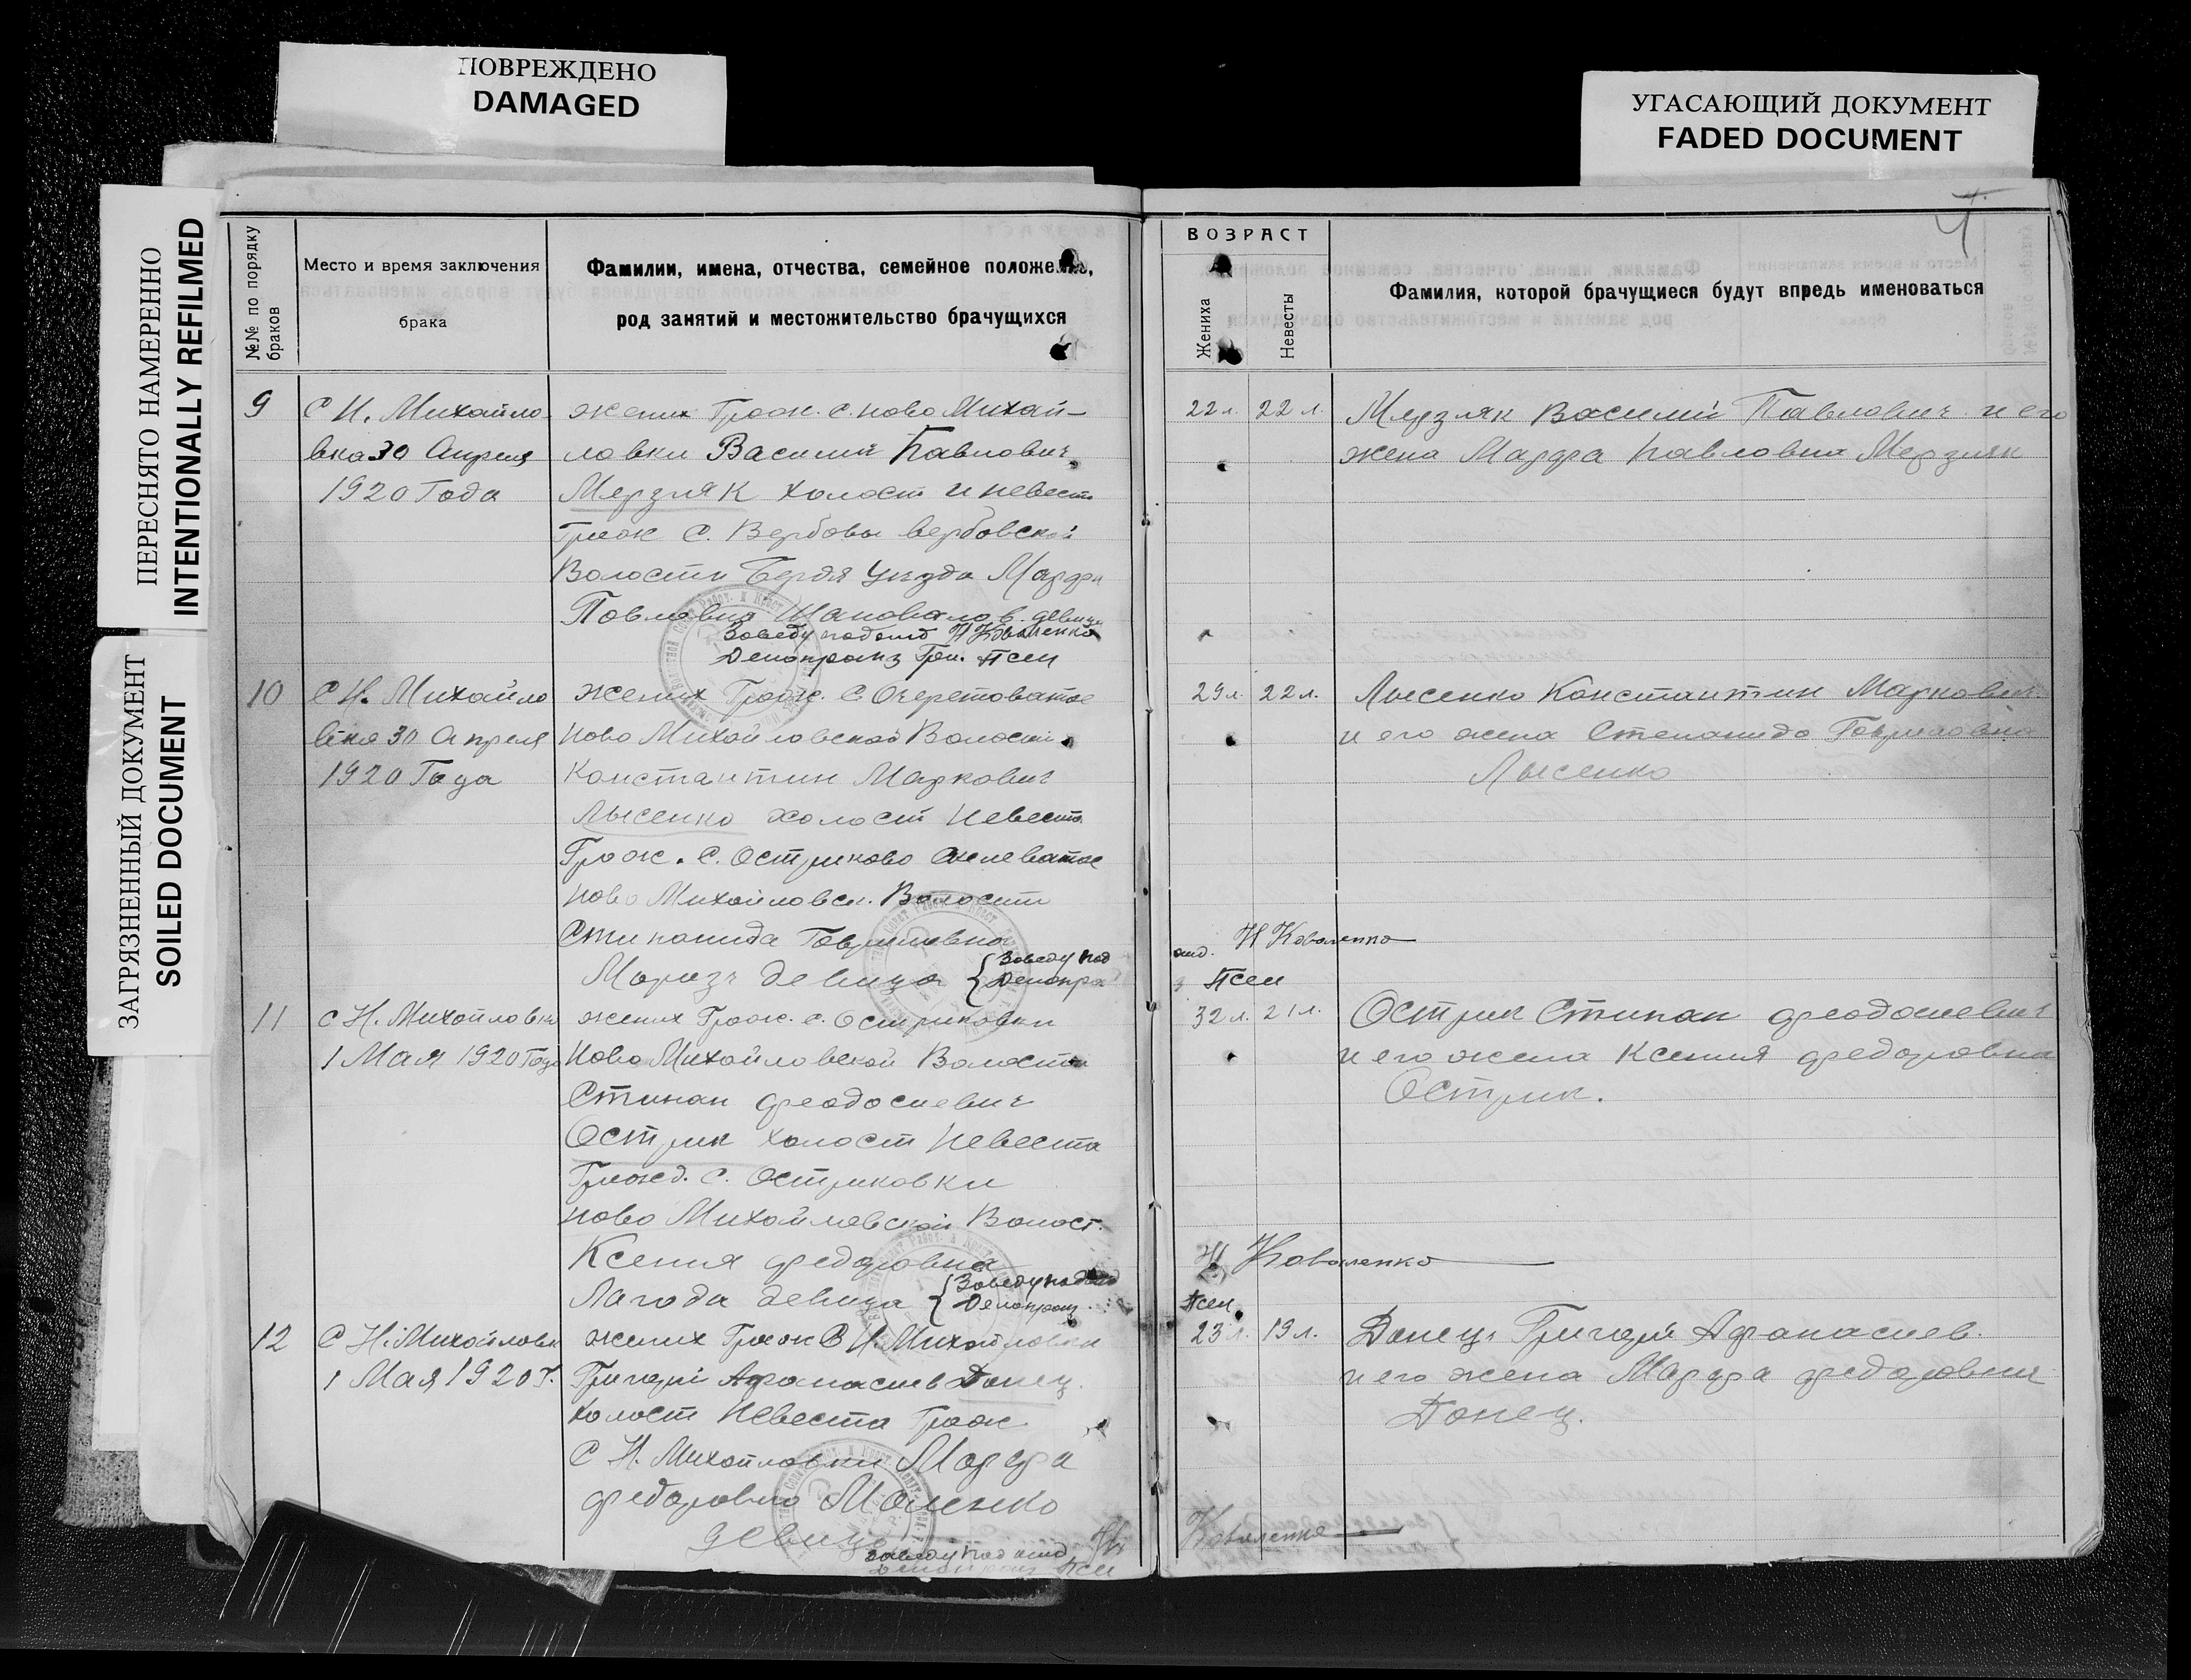 ПОВРЕЖДЕНО
DAMAGED
УГАСАЮЩИЙ ДОКУМЕНТ
FADED DOCUMENT
ПЕРЕСНЯТО НАМЕРЕННО
INTENTIONALLY REFILMED
ЗАГРЯЗНЕННЫЙ ДОКУМЕНТ
SOILED DOCUMENT
4
№№ по порядку браков
Место и время заключения
брака
Фамилии, имена, отчества, семейное положение,
род занятий и местожительство брачущихся
ВОЗРАСТ
Жениха
Невесты
Фамилия, которой брачущиеся будут впредь именоваться
9
С Н. Михайло-
вка 30 Апреля
1920 Года
жених Граж. с. Ново Михай-
ловки Василий Павлович
Мерзляк холост и невест
Граж С. Вербовы Вербовской
Волости Бердя уезда Марфа
Повловна Шаповалов. девица
Заведу подотд Н Коваленко
Делопроиз Гри. Псел
22 л. 22 л.
Мерзляк Василий Павлович и его
жена Марфа Павловна Мерзляк
10
С Н. Михайло
вка 30 Апреля
1920 Года
жених Граж. С. Очеретоватое
Ново Михайловской Волости
Константин Маркович
Лысенко холост Невеста
Граж. С. Остриково
Ново Михайловск. Волости
Стиპанида Гавриловна
Мороз девица {Заведу под
Делопро
отд. Н Коваленко
з Псел
29 л. 22 л.
Лысенко Константин Маркович
и его жена Степанида Гавриловна
Лысенко
11
С Н. Михойловка
1 Мая 1920 Года
жених Граж. с. Остриковки
Ново Михойловской Волости
Стипан Феодосиевич
Острик холост Невеста
Гражд. С. Остриковки
Ново Михойловской Волост.
Ксения Федоровна
Лагода девица {Заведу подотд
Делопроиз.
Н Коваленко
Псел
32 л. 21 л.
Острик Стипан Феодосиевич
и его жена Ксения Федоровна
Острик.
12
С Н. Михойловк
1 Мая 1920 г.
жених Граж С Н. Михойловки
Григорий Афонасиев Донец.
холост Невеста Граж
С Н. Михойловки Марфа
Федоровна Маленко
девица
Заведу под отд Н
Делопроиз Псел
Коваленко
23 л. 19 л.
Донец Григорий Афонасиев.
и его жена Марфа Федоровна
Донец.